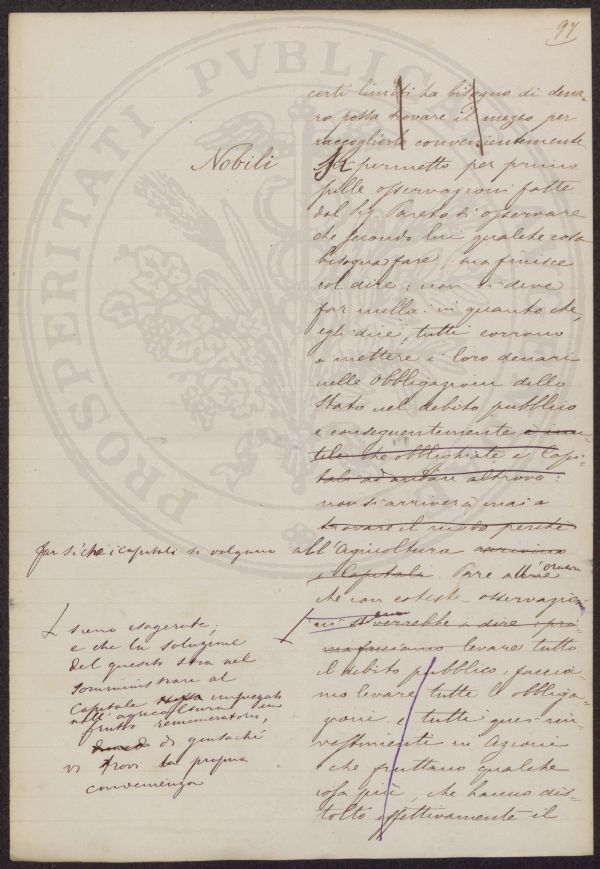 97
certi limiti ha bisogno di dena-
ro possa trovare il mezzo per
raccoglierlo convenientemente
Nobili
Mi permetto per primo
sulle osservazioni fatte
dal Sig Pareto di osservare
che secondo lui qualche cosa
bisogna fare, ma finisce
col dire: non si deve
far nulla: in quanto che,
egli dice, tutti corrono
a mettere i loro denari
nelle Obbligazioni dello
Stato nel debito pubblico
e conseguentemente è inu-
tile che obblighiate i Capi-
tali ad andare altrove:
non si arriverà mai a
trovare il modo perchè
far sì che i capitali si volgano all'Agricoltura
i Capitali. Pare a me
che con coteste osservazioni
si verrebbe a dire: pri-
ma facciamo levare tutto
il debito pubblico, faccia-
mo levare tutte le obbliga-
zioni e tutti quei rin-
vestimenti in Azioni
che fruttano qualche
cosa più, che hanno dis-
tolto effettivamente il
sieno esagerate;
e che la soluzione
del quesito stia nel
somministrare al
Capitale impiegato
nell'agricoltura un
frutto remuneratore,
di guisachè
vi trovi la propria
convenienza
PROSPERITATI PVBLICAE